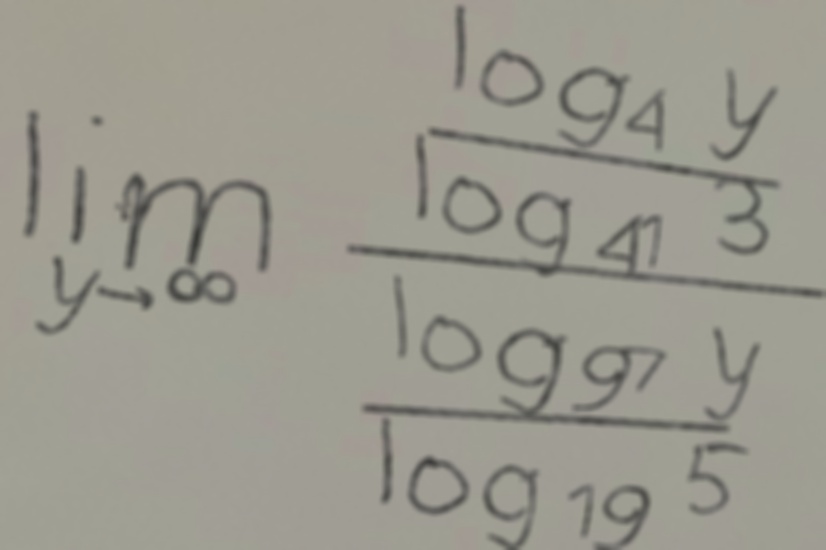 lim y→∞
log₄ y
log₄₁ 3
log₉₇ y
log₁₉ 5